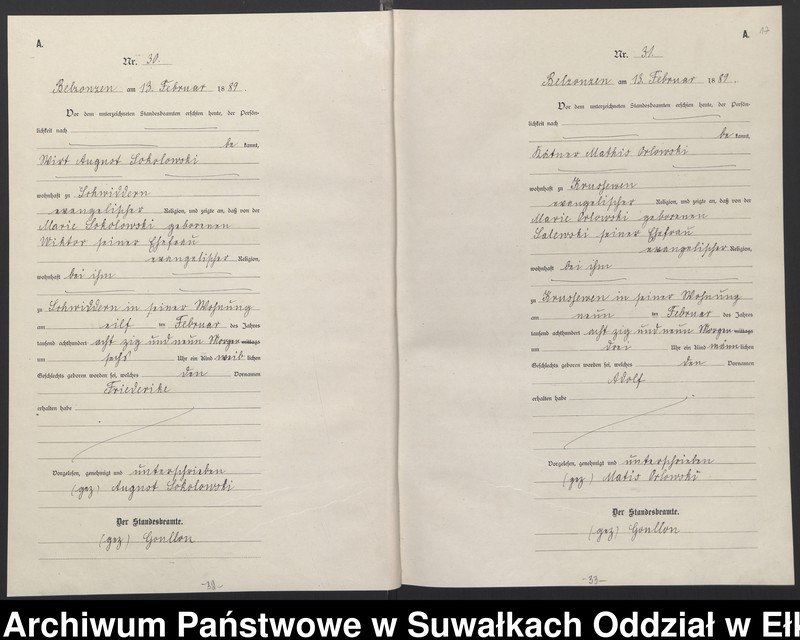 A.
Nr. 30.
Belzonzen am 13. Februar 1889.
Vor dem unterzeichneten Standesbeamten erschien heute, der Persön-
lichkeit nach
be kannt,
Wirt August Sokolowski
wohnhaft zu Schwiddern
evangelischer Religion, und zeigte an, daß von der
Marie Sokolowski geborenen
Wiktor seiner Ehefrau
evangelischer Religion,
wohnhaft bei ihm
zu Schwiddern in seiner Wohnung
am eilf ten Februar des Jahres
tausend achthundert acht zig und neun Morgens mittags
um sechs Uhr ein Kind weib lichen
Geschlechts geboren worden sei, welches den Vornamen
Friederike
erhalten habe
Vorgelesen, genehmigt und unterschrieben
(gez) August Sokolowski
Der Standesbeamte.
(gez) Goullon
-32-
A.
17
Nr. 31.
Belzonzen am 13. Februar 1889.
Vor dem unterzeichneten Standesbeamten erschien heute, der Persön-
lichkeit nach
be kannt,
Kätner Mathis Orlowski
wohnhaft zu Krussewen
evangelischer Religion, und zeigte an, daß von der
Marie Orlowski geborenen
Salewski seiner Ehefrau
evangelischer Religion,
wohnhaft bei ihm
zu Krussewen in seiner Wohnung
am neun ten Februar des Jahres
tausend achthundert acht zig und neun Morgens mittags
um drei Uhr ein Kind männ lichen
Geschlechts geboren worden sei, welches den Vornamen
Adolf
erhalten habe
Vorgelesen, genehmigt und unterschrieben
(gez) Matis Orlowski
Der Standesbeamte.
(gez) Goullon
-33-
Archiwum Państwowe w Suwałkach Oddział w Eł